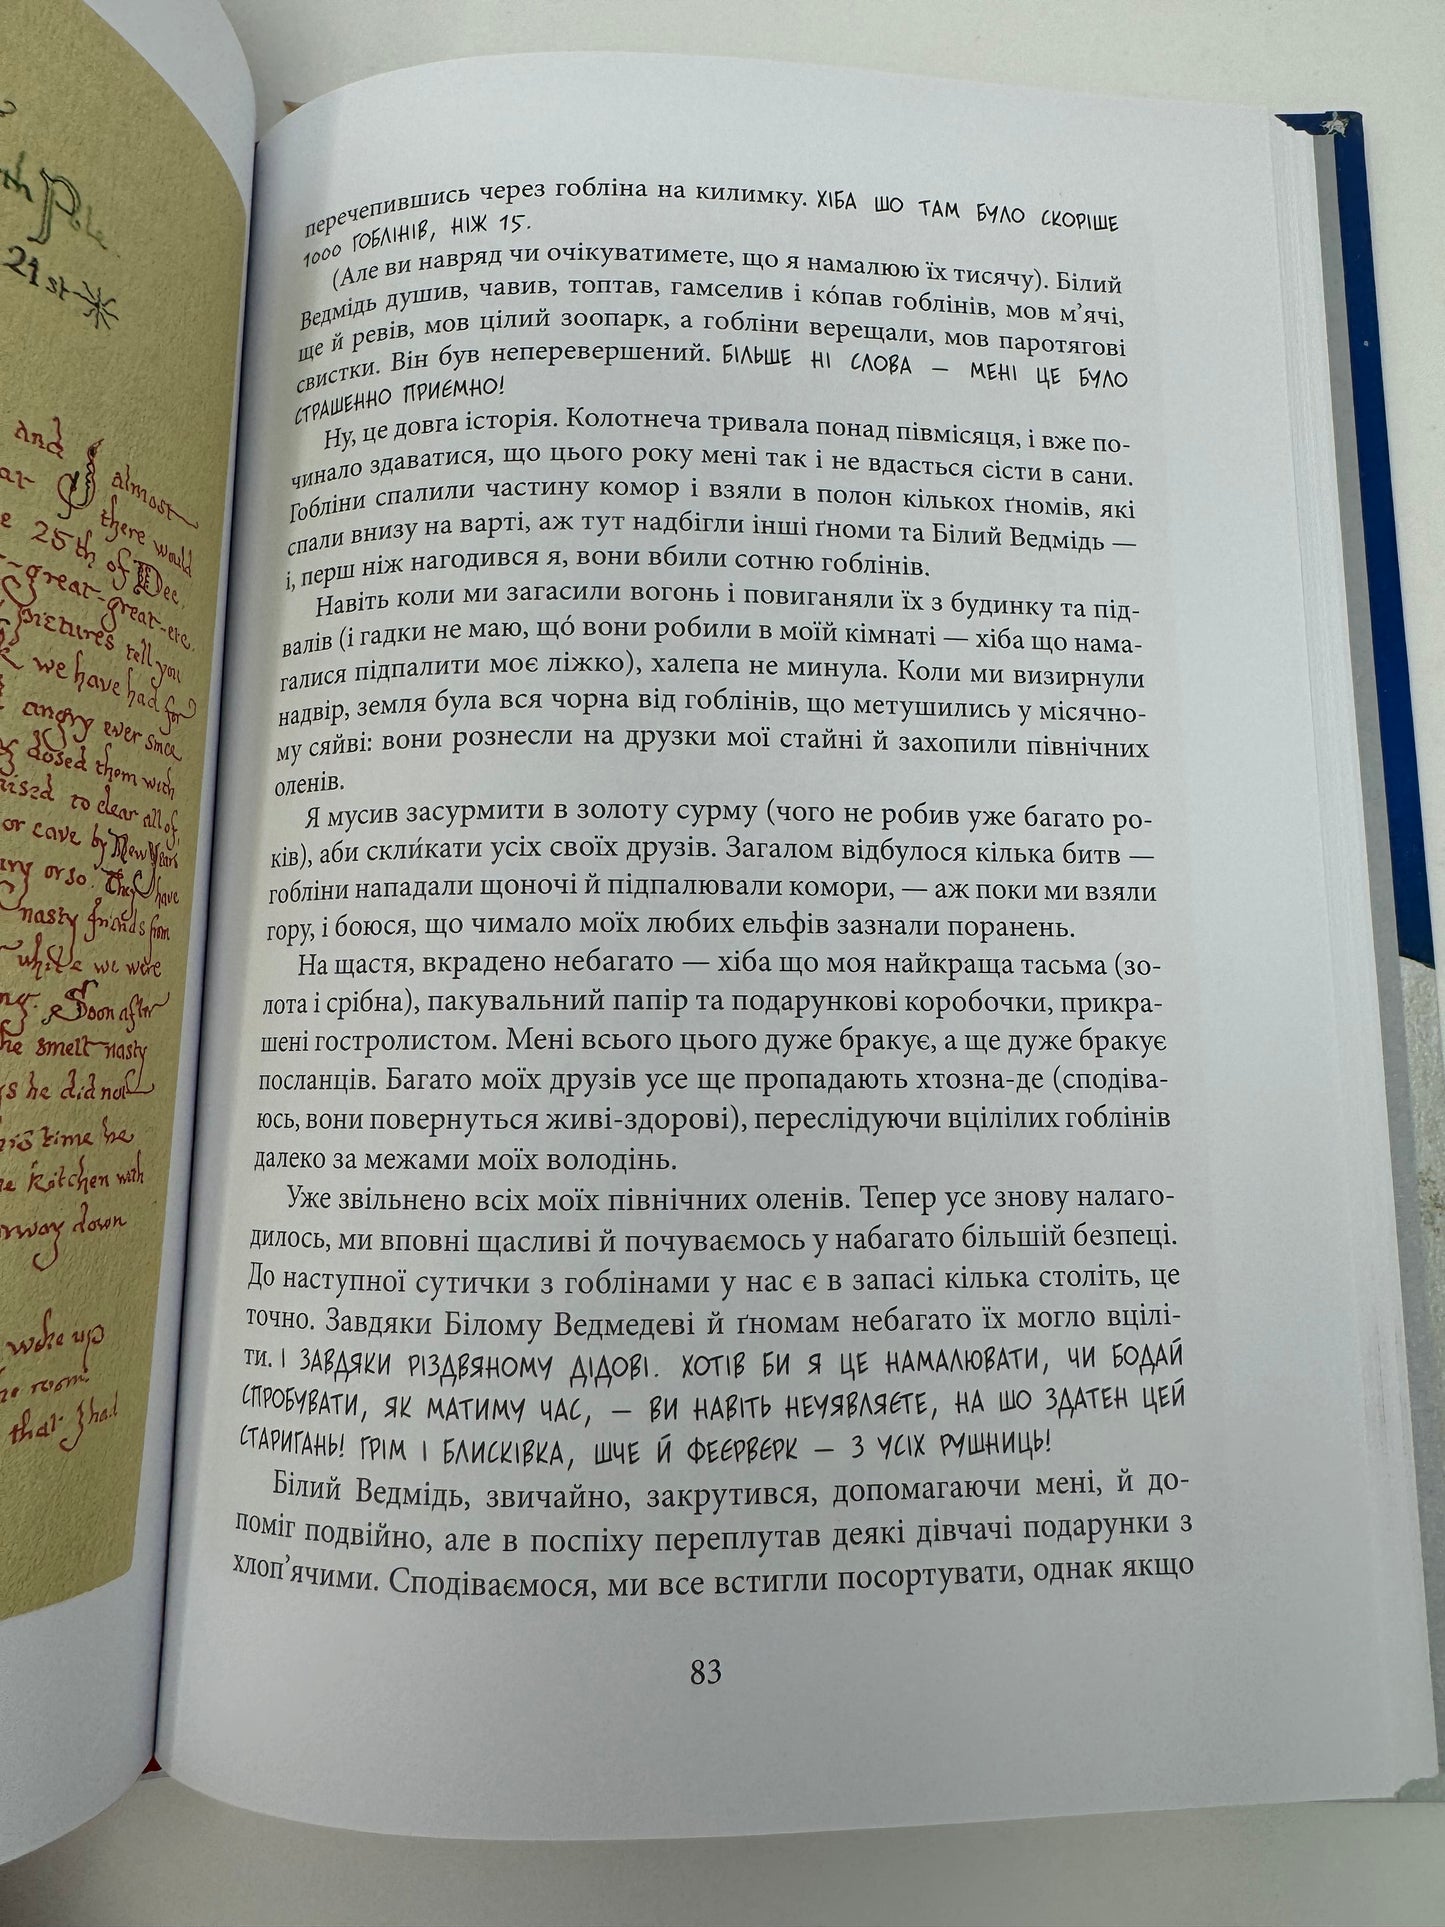 21st
and
I almost
there would
25th of Dec.
-great-great-etc.
pictures tell you
we have had for
angry ever since
dosed them with
to clear all of
or cave by New Years
or so. They have
nasty friends from
while we were
Soon after
he smelt nasty
he did not
this time he
kitchen with
down
woke up
room
that I had
перечепившись через гобліна на килимку. ХІБА ШО ТАМ БУЛО СКОРІШЕ
1000 ГОБЛІНІВ, НІЖ 15.
(Але ви навряд чи очікуватимете, що я намалюю їх тисячу). Білий
Ведмідь душив, чавив, топтав, гамселив і ко́пав гоблінів, мов м’ячі,
ще й ревів, мов цілий зоопарк, а гобліни верещали, мов паротягові
свистки. Він був неперевершений. БІЛЬШЕ НІ СЛОВА — МЕНІ ЦЕ БУЛО
СТРАШЕННО ПРИЄМНО!
Ну, це довга історія. Колотнеча тривала понад півмісяця, і вже по-
чинало здаватися, що цього року мені так і не вдасться сісти в сани.
Гобліни спалили частину комор і взяли в полон кількох ґномів, які
спали внизу на варті, аж тут надбігли інші ґноми та Білий Ведмідь —
і, перш ніж нагодився я, вони вбили сотню гоблінів.
Навіть коли ми загасили вогонь і повиганяли їх з будинку та під-
валів (і гадки не маю, що́ вони робили в моїй кімнаті — хіба що нама-
галися підпалити моє ліжко), халепа не минула. Коли ми визирнули
надвір, земля була вся чорна від гоблінів, що метушились у місячно-
му сяйві: вони рознесли на друзки мої стайні й захопили північних
оленів.
Я мусив засурмити в золоту сурму (чого не робив уже багато ро-
ків), аби скли́кати усіх своїх друзів. Загалом відбулося кілька битв —
гобліни нападали щоночі й підпалювали комори, — аж поки ми взяли
гору, і боюся, що чимало моїх любих ельфів зазнали поранень.
На щастя, вкрадено небагато — хіба що моя найкраща тасьма (зо-
лота і срібна), пакувальний папір та подарункові коробочки, прикра-
шені гостролистом. Мені всього цього дуже бракує, а ще дуже бракує
посланців. Багато моїх друзів усе ще пропадають хтозна-де (сподіва-
юсь, вони повернуться живі-здорові), переслідуючи вцілілих гоблінів
далеко за межами моїх володінь.
Уже звільнено всіх моїх північних оленів. Тепер усе знову налаго-
дилось, ми вповні щасливі й почуваємось у набагато більшій безпеці.
До наступної сутички з гоблінами у нас є в запасі кілька століть, це
точно. Завдяки Білому Ведмедеві й ґномам небагато їх могло вцілі-
ти. І ЗАВДЯКИ РІЗДВЯНОМУ ДІДОВІ. ХОТІВ БИ Я ЦЕ НАМАЛЮВАТИ, ЧИ БОДАЙ
СПРОБУВАТИ, ЯК МАТИМУ ЧАС, — ВИ НАВІТЬ НЕУЯВЛЯЄТЕ, НА ШО ЗДАТЕН ЦЕЙ
СТАРИГАНЬ! ГРІМ І БЛИСКІВКА, ШЧЕ Й ФЕЄРВЄРК — З УСІХ РУШНИЦЬ!
Білий Ведмідь, звичайно, закрутився, допомагаючи мені, й до-
поміг подвійно, але в поспіху переплутав деякі дівчачі подарунки з
хлоп’ячими. Сподіваємося, ми все встигли посортувати, однак якщо
83